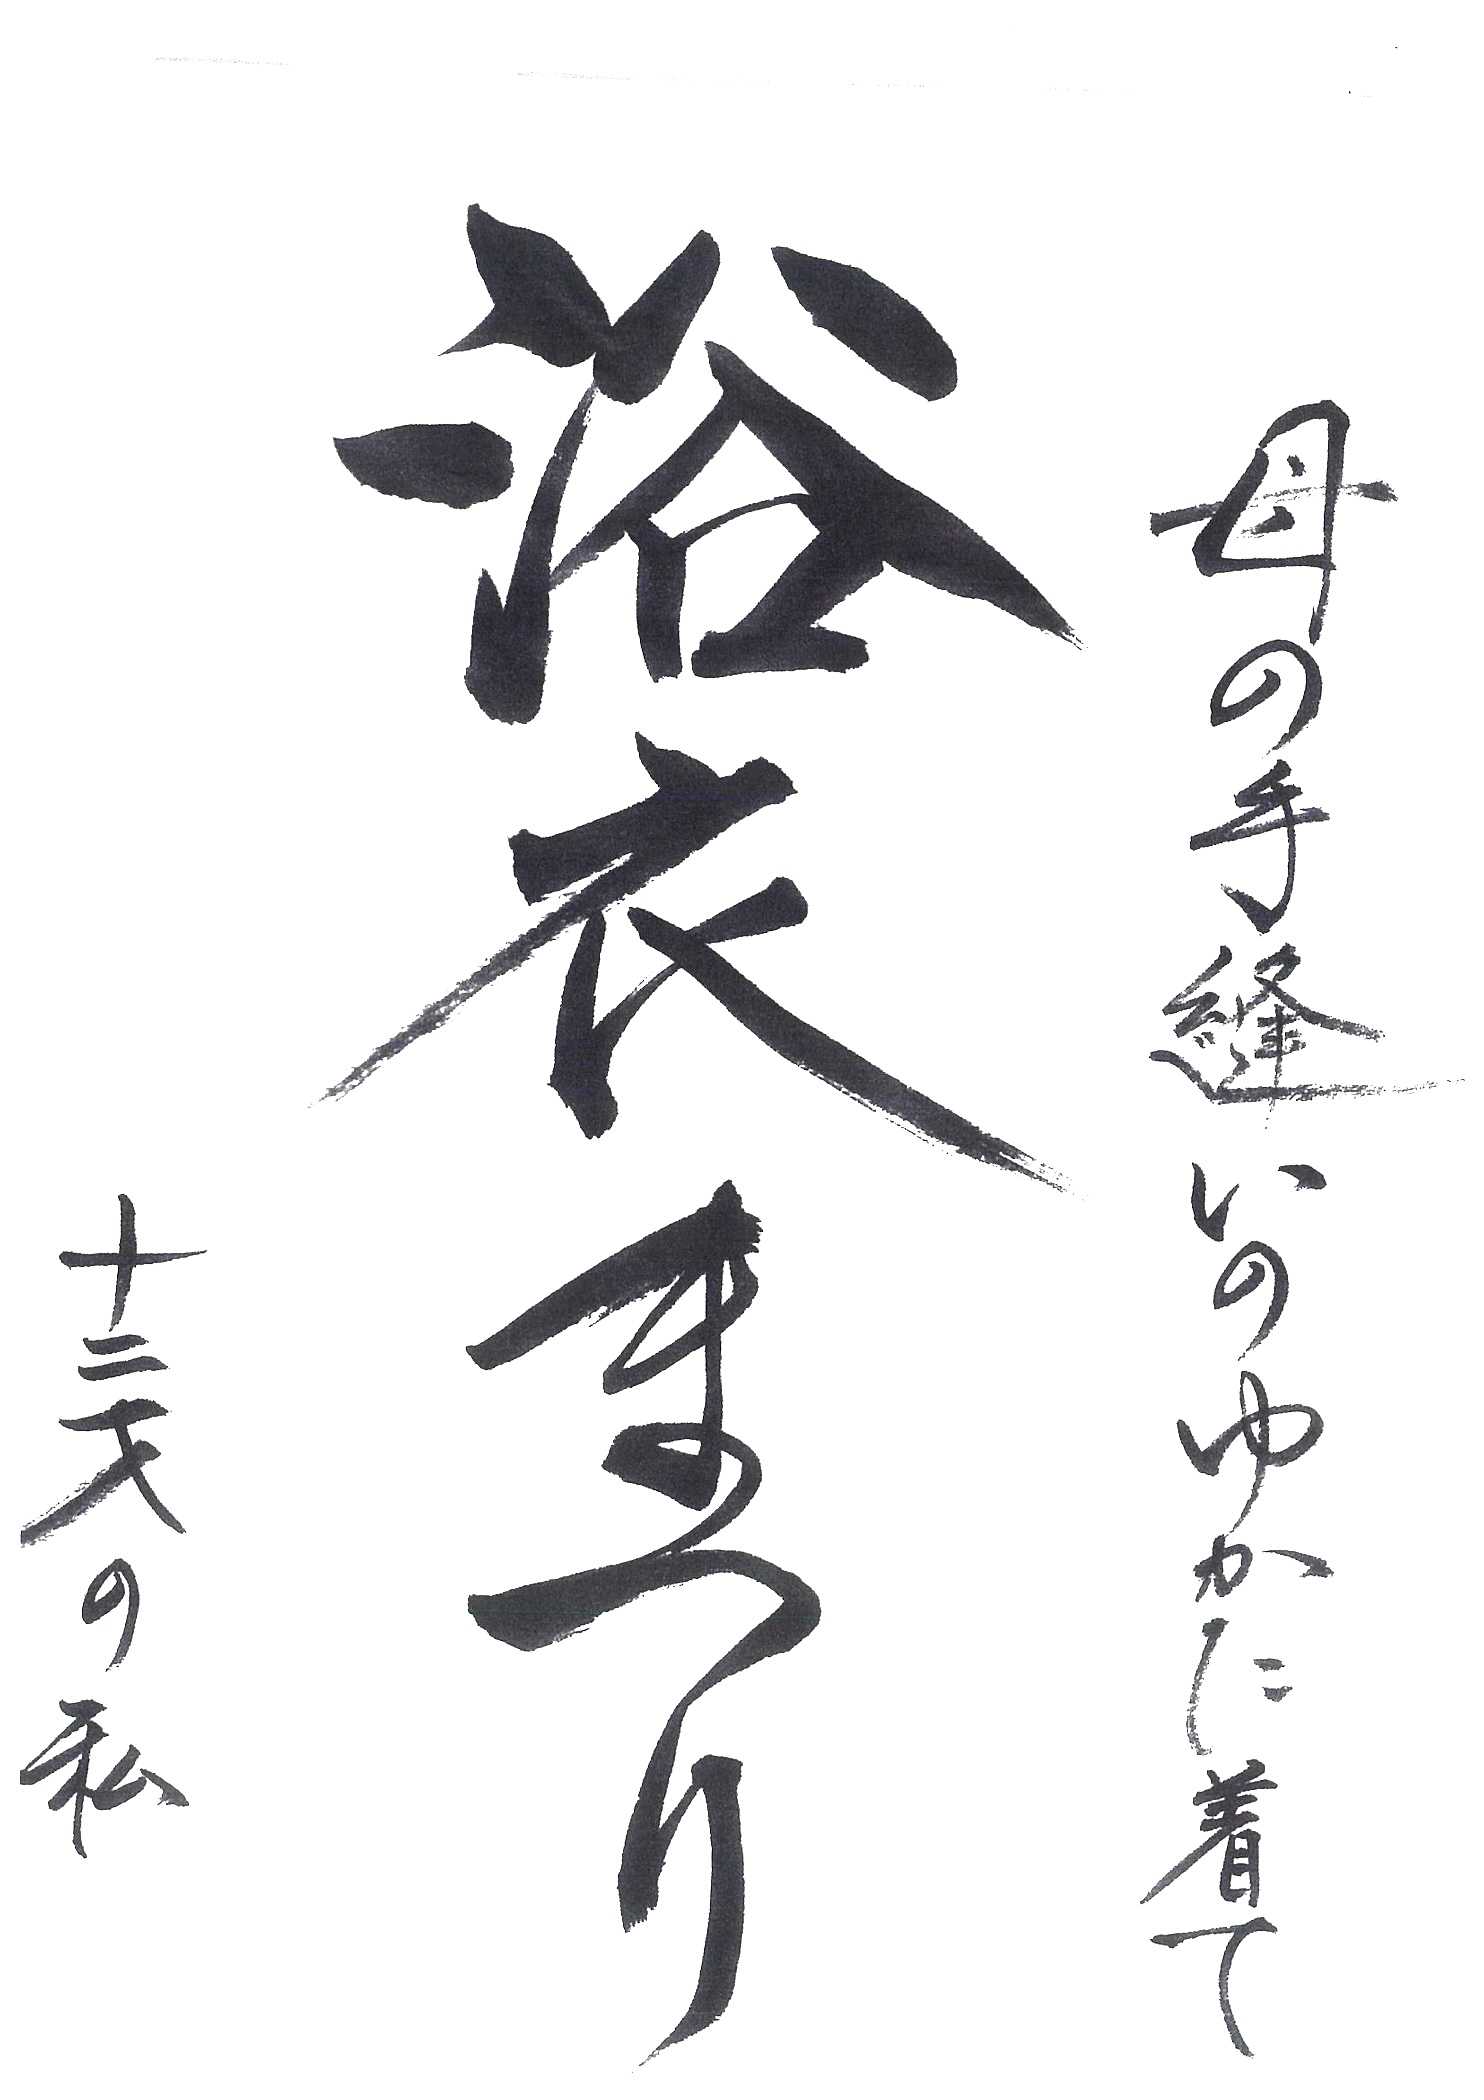 母の手縫いのゆかた着て
浴衣まつり
十二才の私